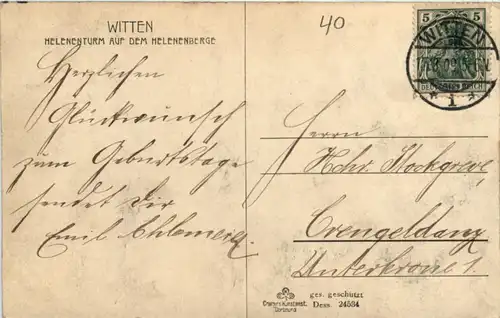 WITTEN
HELENENTURM AUF DEM HELENENBERGE
40
5 5
WITTEN
DEUTSCHES REICH
* 1 *
Herzlichen
Glückwunsch
zum Geburtstage
sendet Dir
Emil
Herrn
Hchr. Stockgreve
Crengeldanz
Unterkrone 1.
Cramers Kunstanst.
Dortmund
ges. geschützt
Dess. 24584